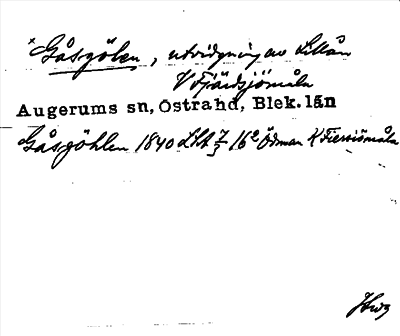 × Gåsgölen, utvidgning av Lillån
V Fjärdsjömåla
Augerums sn, Östra hd, Blek. län
Gåsgöhlen 1840 LSA 7/3 16² Ödman K Fiersiömåla